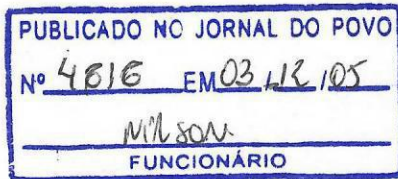 PUBLICADO NO JORNAL DO POVO
Nº 4816 EM 03/12/05
Nilson
FUNCIONÁRIO